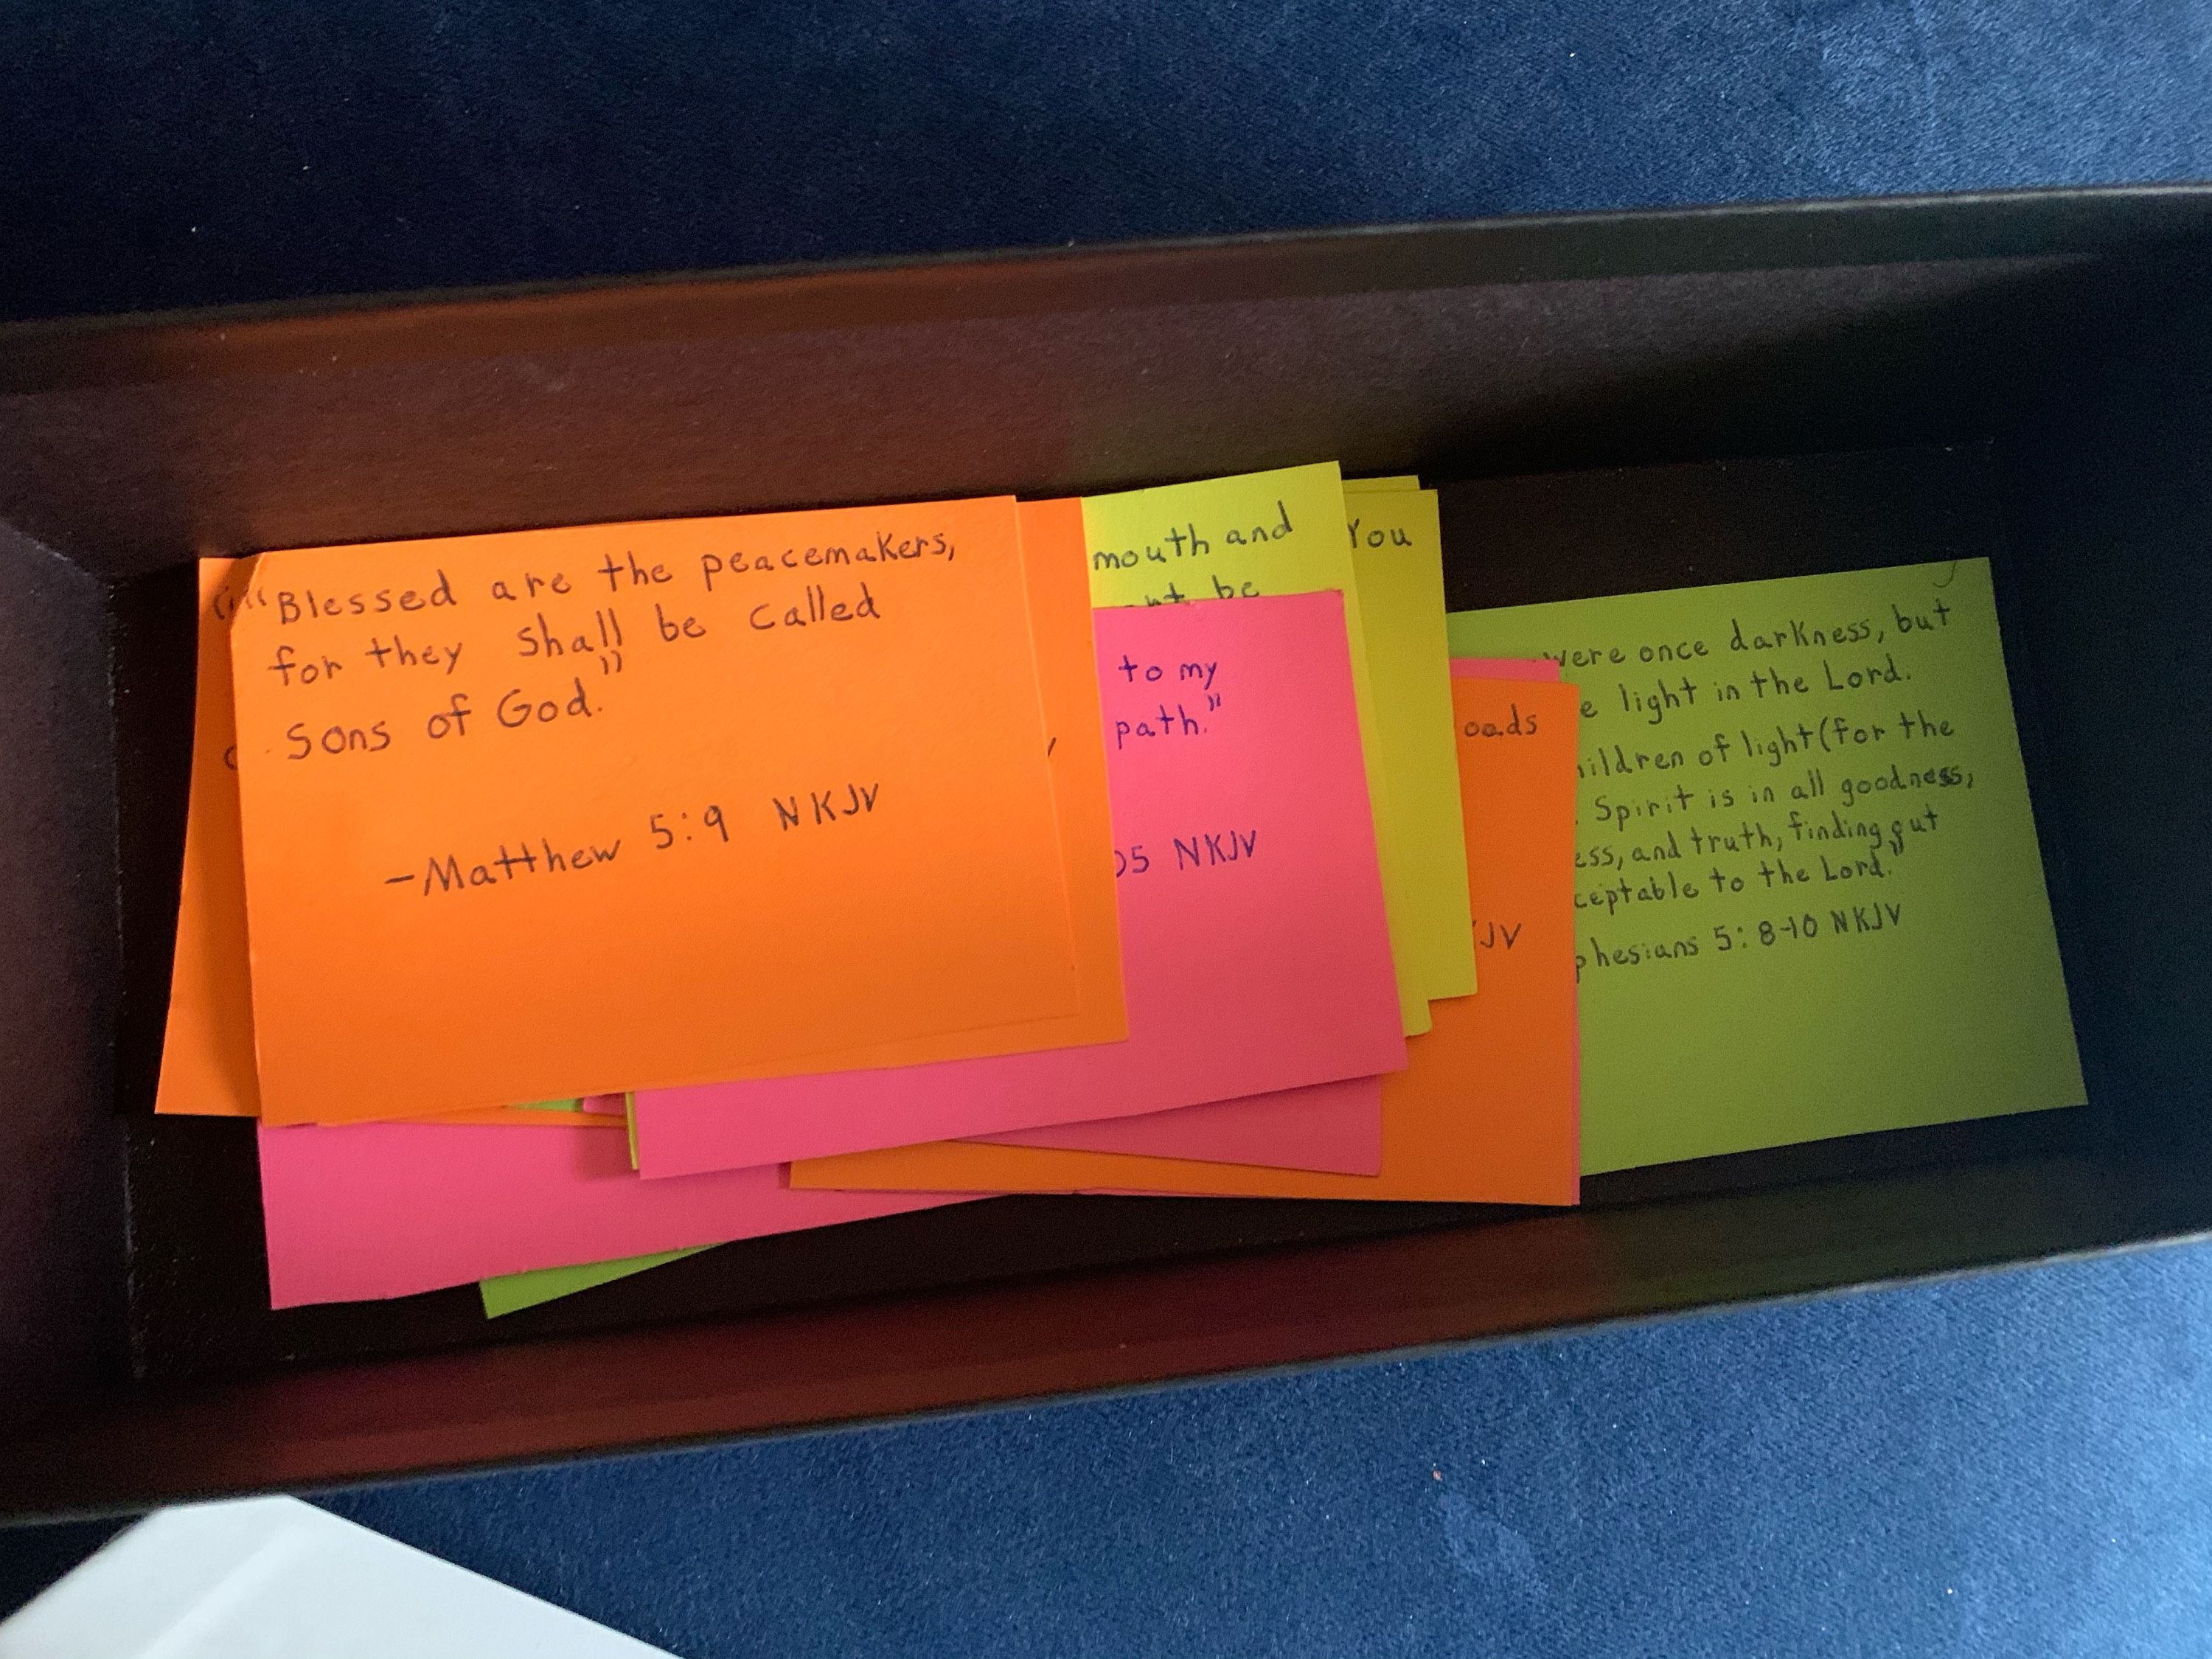 "Blessed are the peacemakers,
for they shall be called
Sons of God."
-Matthew 5:9 NKJV
mouth and
be
to my
path."
05 NKJV
You
oads
KJV
were once darkness, but
e light in the Lord.
hildren of light (for the
Spirit is in all goodness,
ess, and truth, finding out
ceptable to the Lord."
phesians 5:8-10 NKJV